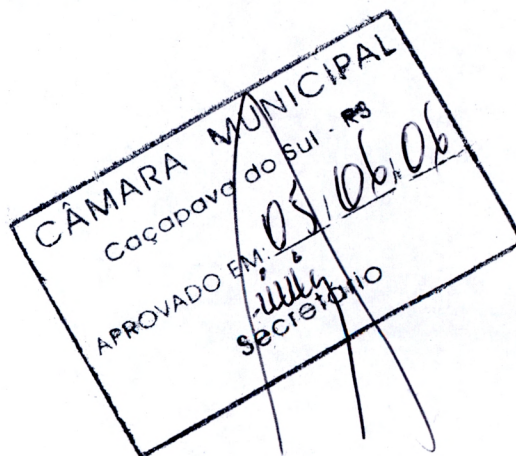 CÂMARA MUNICIPAL
Caçapava do Sul - RS
APROVADO EM: 05/06/06
Secretário